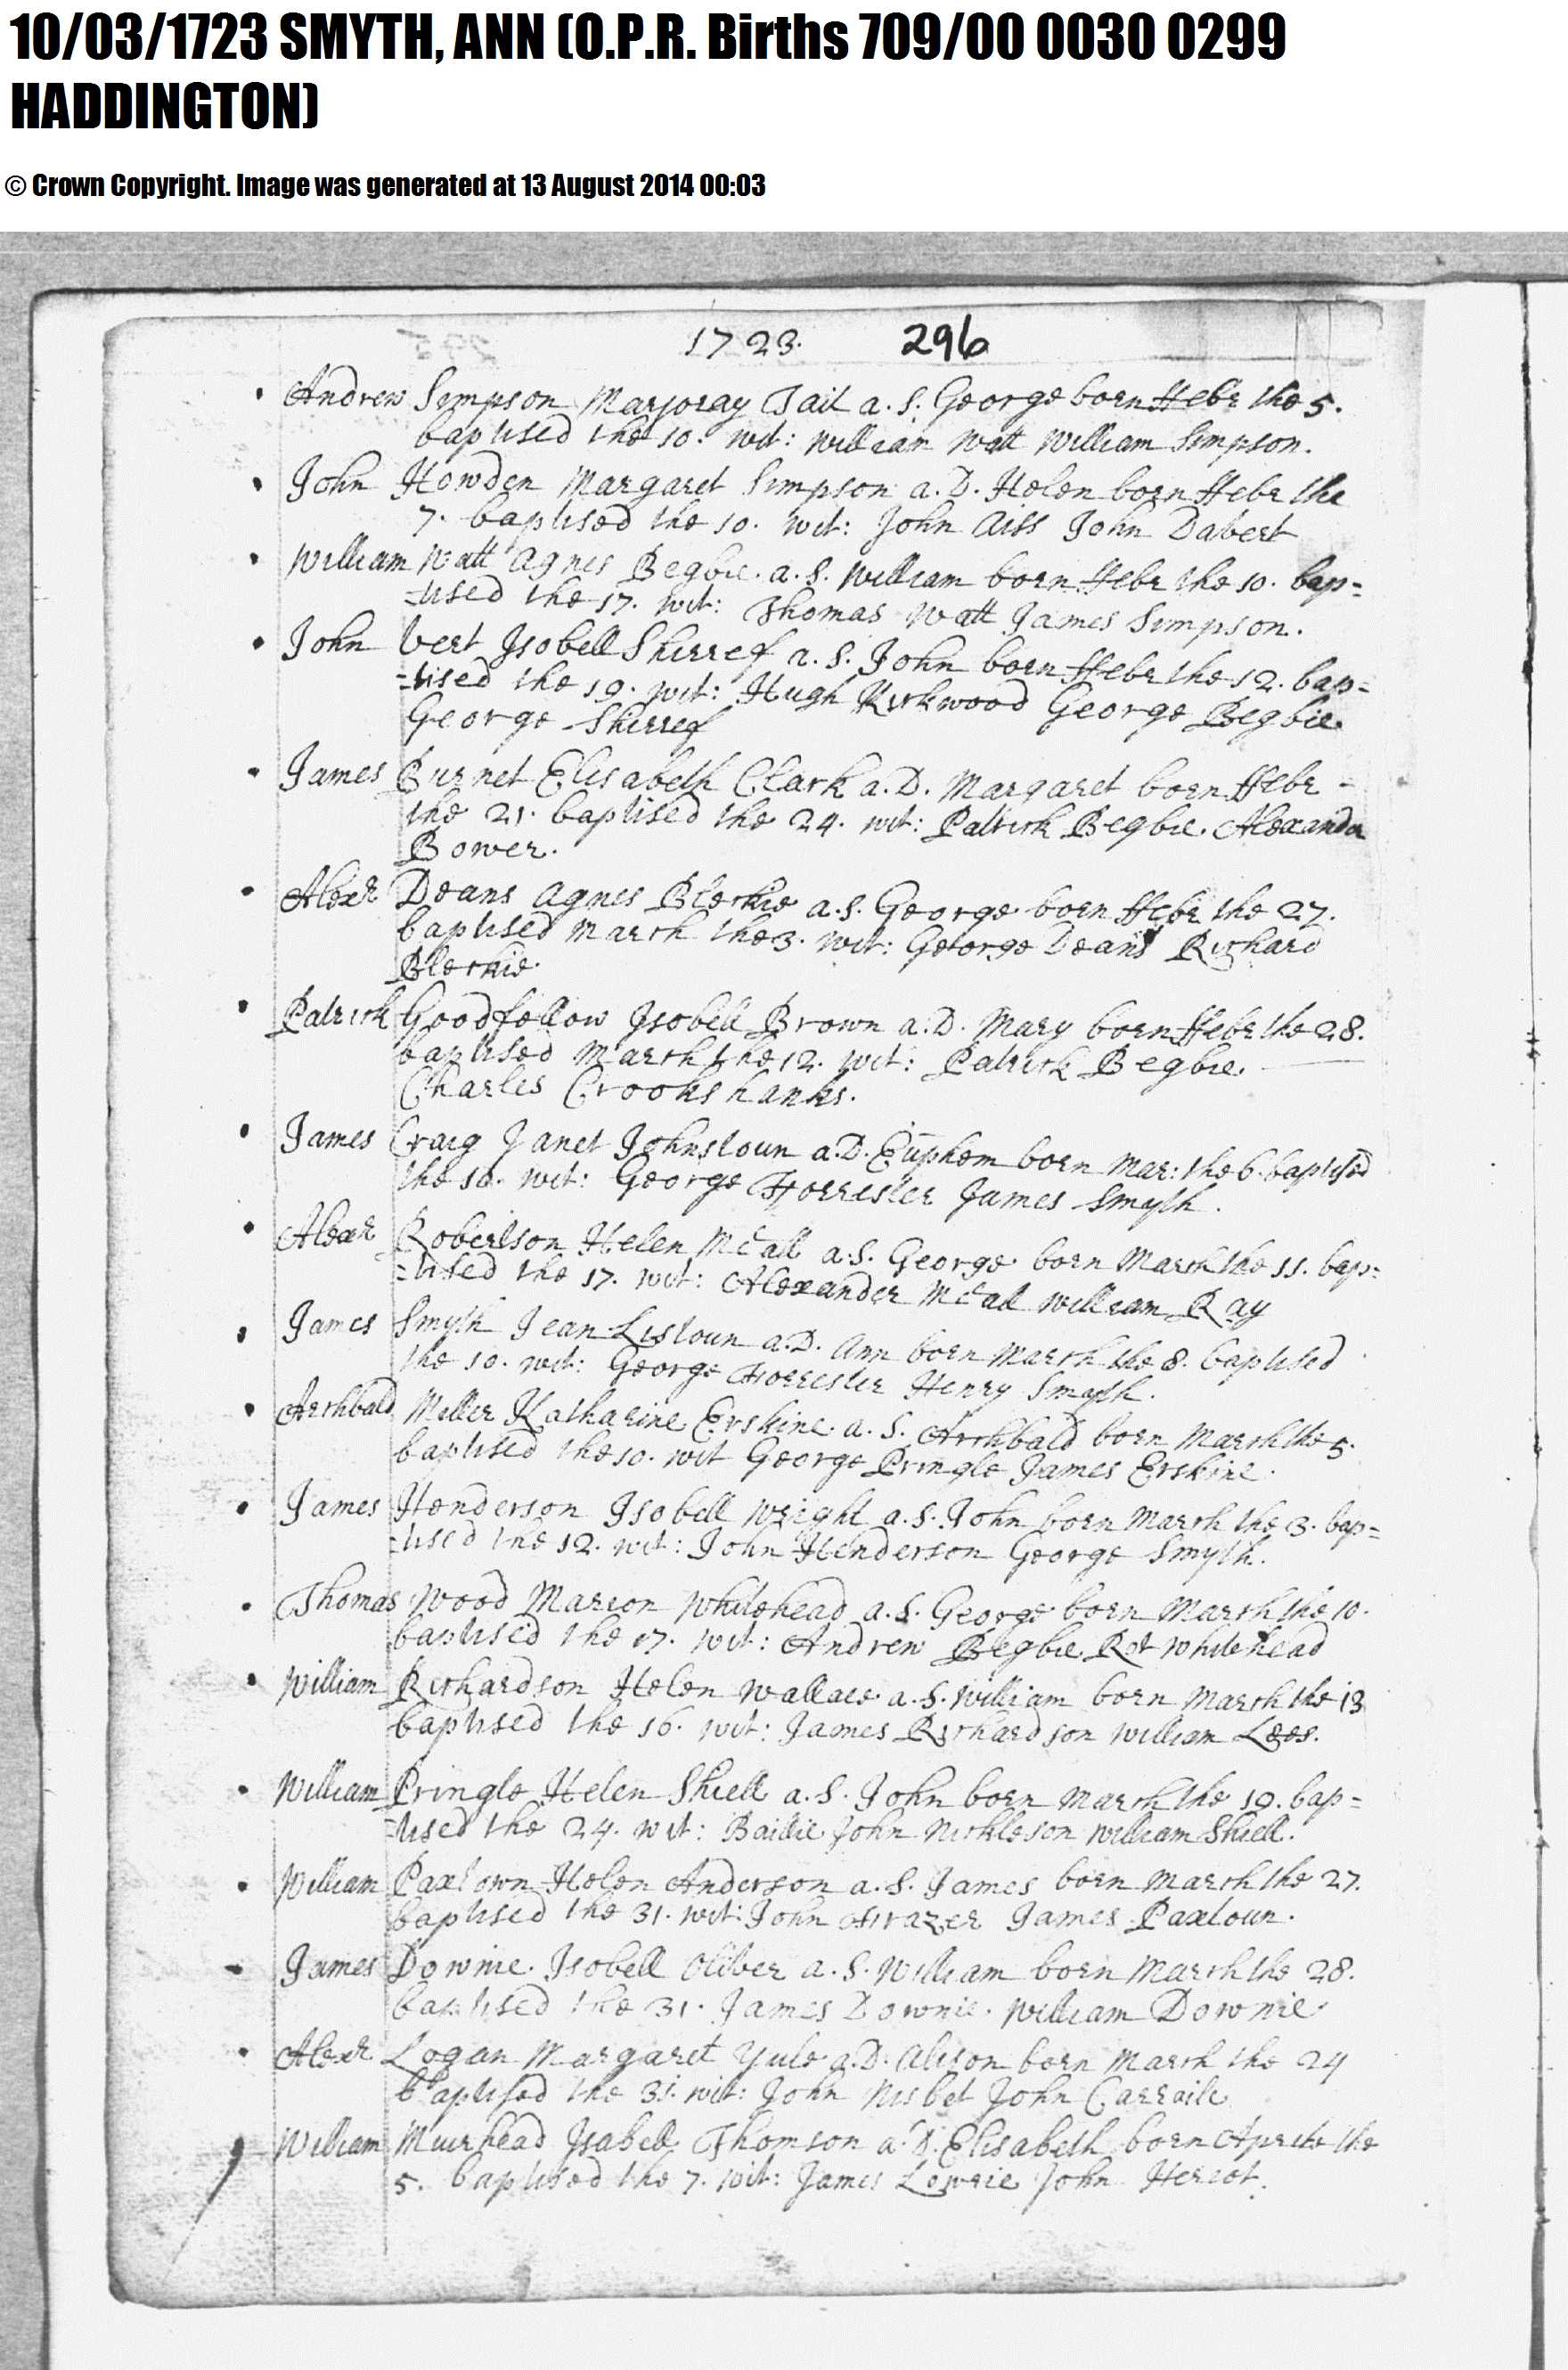 10/03/1723 SMYTH, ANN (O.P.R. Births 709/00 0030 0299
HADDINGTON)
© Crown Copyright. Image was generated at 13 August 2014 00:03
1723. 296
Andrew Simpson Marjoray Tait a. S. George born ffebr the 5.
baptised the 10. wit: william watt william Simpson.
John Howden Margaret Simpson a. D. Helen born ffebr the
7. baptised the 10. wit: John John Dabert
William Watt Agnes Begbie. a. S. William born ffebr the 10. bap=
=tised the 17. wit: Thomas Watt James Simpson.
John Vert Isobell Shirref a. S. John born ffebr the 12. bap=
=tised the 19. wit: Hugh Kirkwood George Begbie
George Shirref
James Burnet Elisabeth Clark a. D. Margaret born ffebr -
the 21. baptised the 24. wit: Patrick Begbie. Alexander
Bower.
Alexr Deans Agnes Blerkie a. S. George born ffebr the 27.
baptised March the 3. wit: George Deans Richard
Blerkie.
Patrick Goodfellow Isobell Brown a. D. Mary born ffebr the 28.
baptised March the 12. wit: Patrick Begbie.
Charles Crookshanks.
James Craig Janet Johnstoun a. D. Euphem born Mar: the 6. baptised
the 10. wit: George fforrester James Smyth.
Alexr Robertson Helen McCall a. S. George born March the 11. bap=
=tised the 17. wit: Alexander McCall William Ray
James Smyth Jean Listoun a. D. Ann born March the 8. baptised
the 10. wit: George fforrester Henry Smyth.
Archbald Miller Katharine Erskine. a. S. Archbald born March the 5.
baptised the 10. wit George Pringle James Erskine.
James Henderson Isobell Wright a. S. John born March the 3. bap=
=tised the 12. wit: John Henderson George Smyth.
Thomas Wood Marion Whitehead a. S. George born March the 10.
baptised the 17. wit: Andrew Begbie Rot Whitehead
William Richardson Helen Wallace a. S. William born March the 13
baptised the 16. wit: James Richardson William Lees.
William Pringle Helen Shiell a. S. John born March the 19. bap=
=tised the 24. wit: Bailie John Nickleson William Shiell.
William Paxtown Helen Anderson a. S. James born March the 27.
baptised the 31. wit: John ffrazer James Paxtoun.
James Downie. Isobell Oliver a. S. William born March the 28.
baptised the 31. James Downie. William Downie
Alexr Logan Margaret Yule a. D. Alison born March the 24
baptised the 31. wit: John Nisbet John Carraile
William Muirhead Isabell Thomson a. D. Elisabeth born Aprile the
5. baptised the 7. wit: James Lowrie John Heriot.